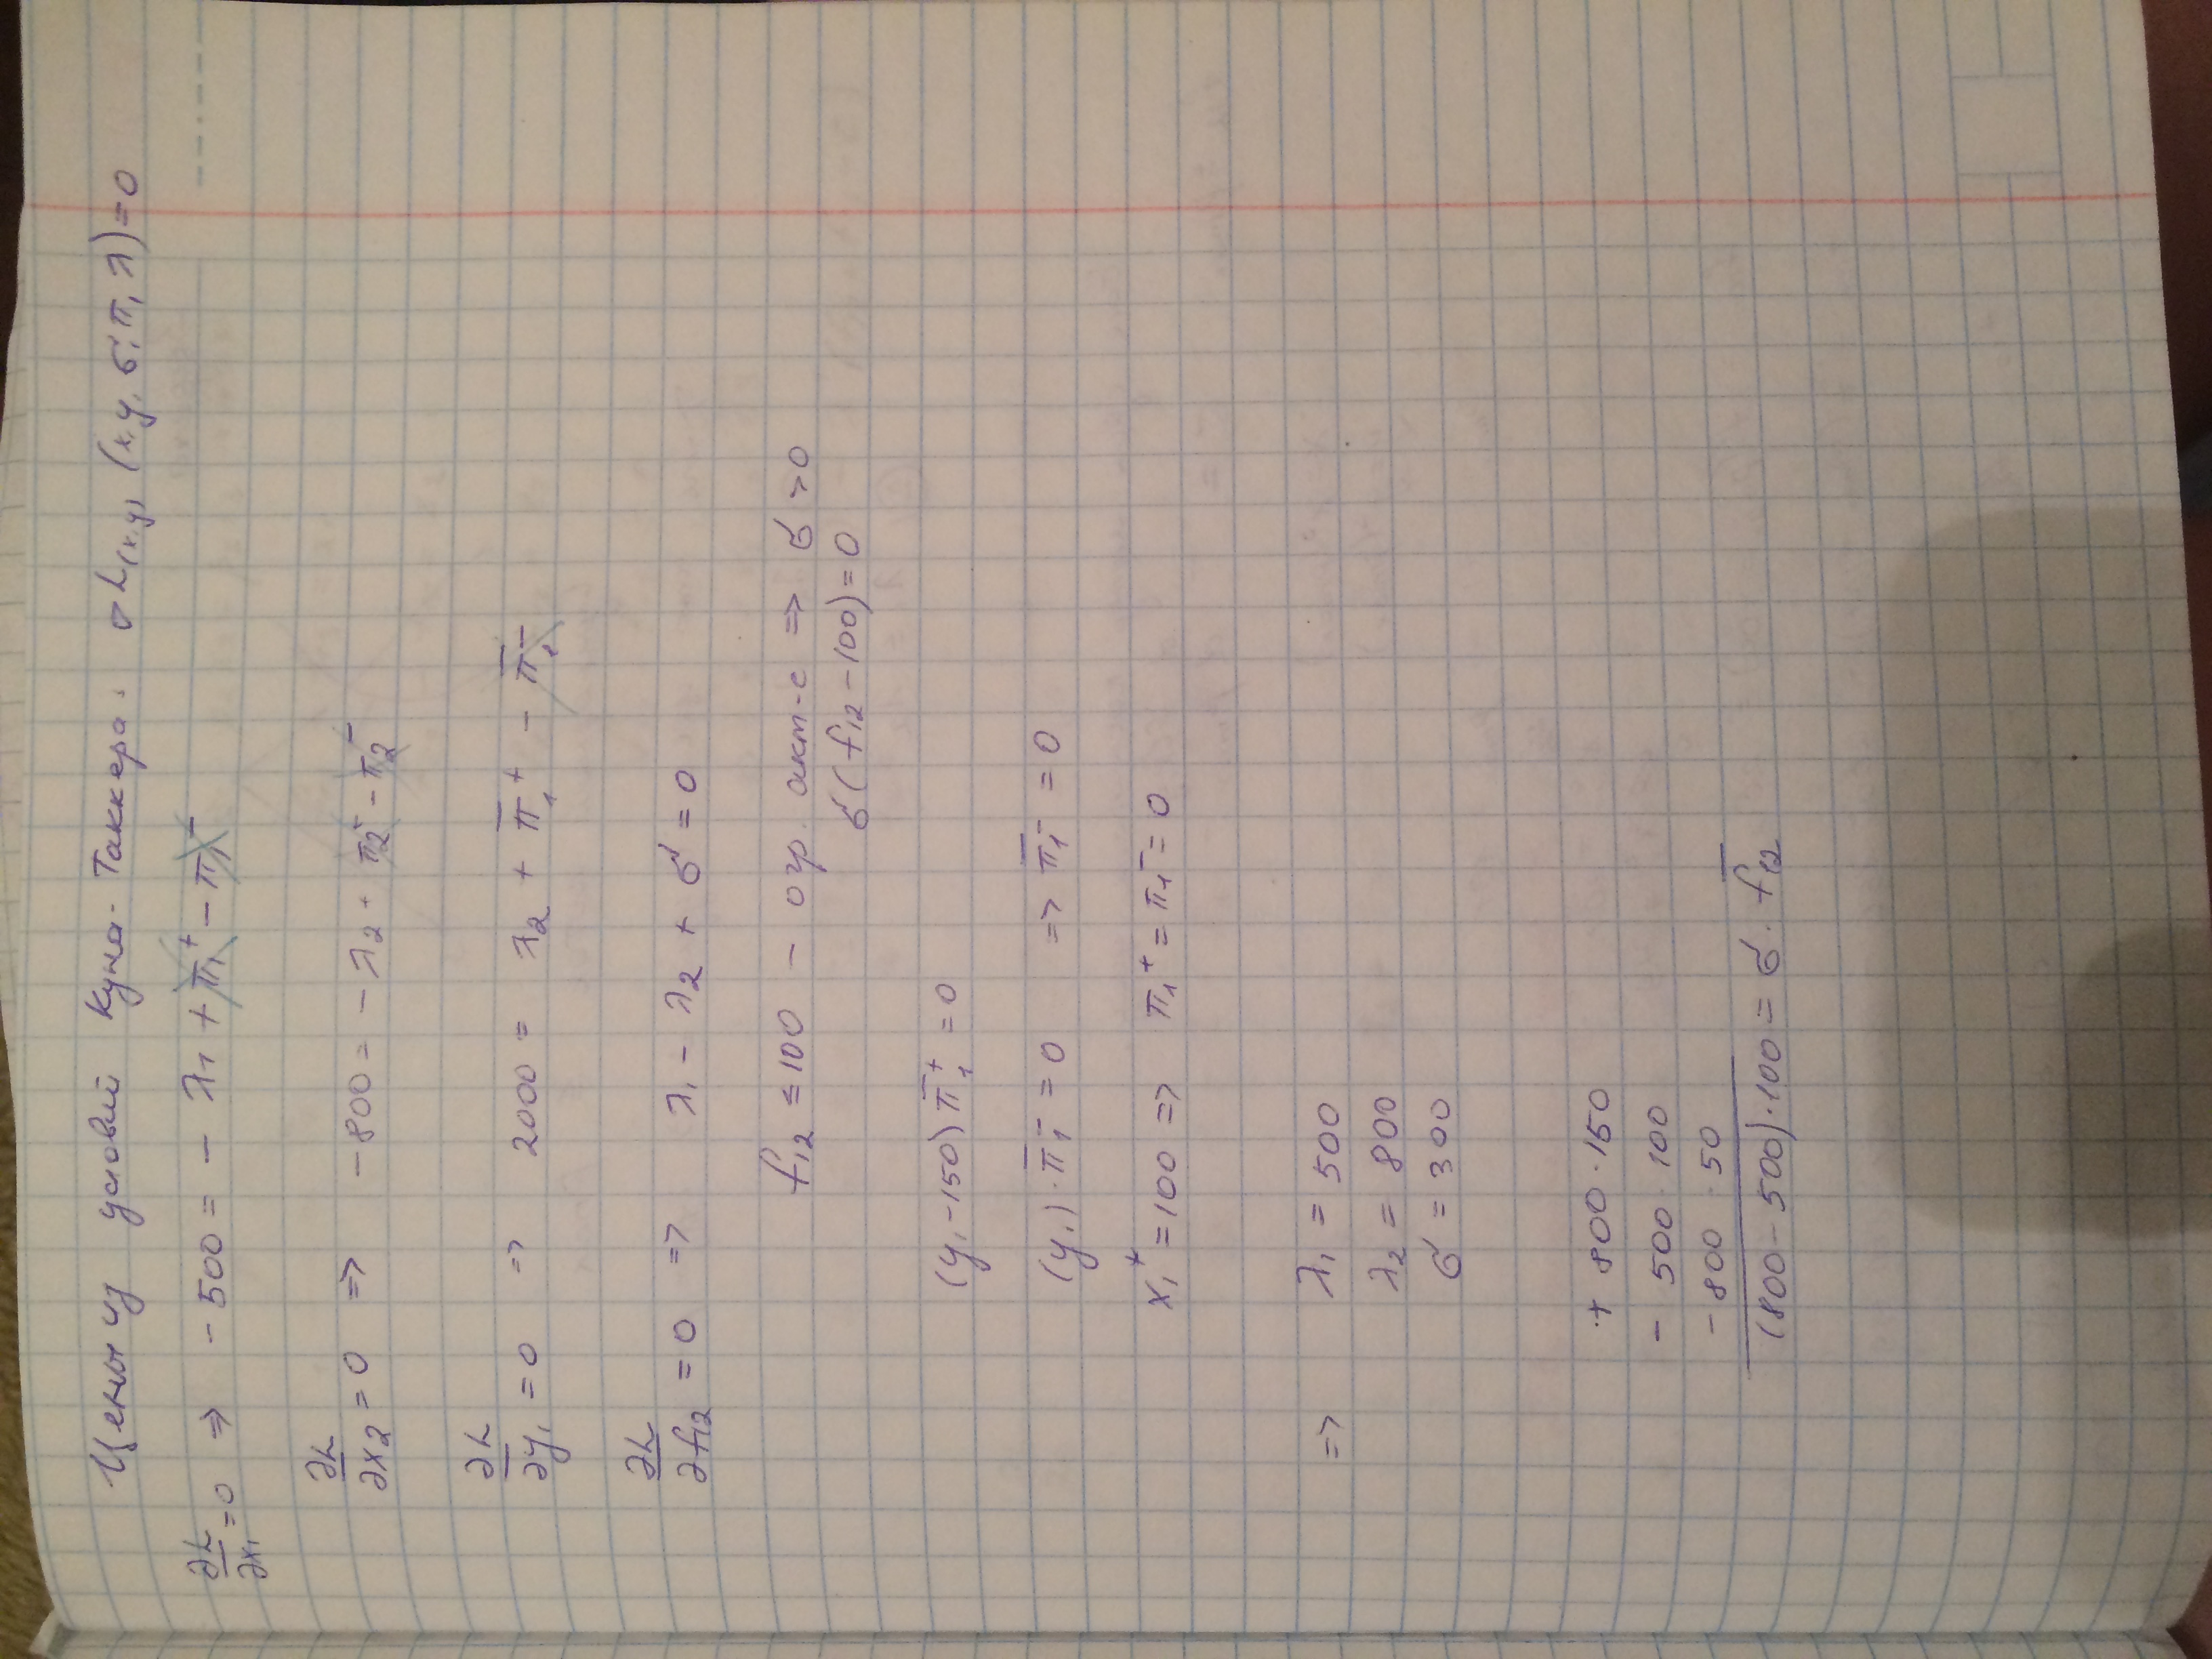 Цены из условий Куна-Таккера. ∇L(x,y) (x,y,σ,π,λ)=0
∂L/∂x₁=0 ⇒ -500 = -λ₁ + π₁⁺ - π₁⁻
∂L/∂x₂=0 ⇒ -800 = -λ₂ + π₂⁺ - π₂⁻
∂L/∂y₁=0 ⇒ 2000 = λ₂ + π̄₁⁺ - π̄₁⁻
∂L/∂f₁₂=0 ⇒ λ₁ - λ₂ + σ = 0
f₁₂ ≤ 100 - огр. акт-е ⇒ σ > 0
σ(f₁₂-100)=0
(y₁-150)π̄₁⁺=0
(y₁)·π̄₁⁻=0 ⇒ π̄₁⁻=0
x₁*=100 ⇒ π₁⁺=π₁⁻=0
⇒ λ₁ = 500
λ₂ = 800
σ = 300
+ 800·150
- 500·100
- 800·50
(800-500)·100 = σ·f̄₁₂